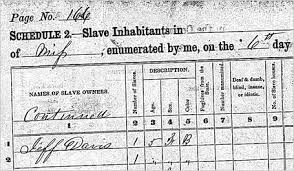 Page No. 166
SCHEDULE 2.—Slave Inhabitants in
of Miss, enumerated by me, on the 6th day
DESCRIPTION.
NAMES OF SLAVE OWNERS. Number of Slaves. Age. Sex. Color. Fugitives from the State. Number manumitted. Deaf & dumb, blind, insane, or idiotic. No. of Slave houses.
1 2 3 4 5 6 7 8 9
Continued
1 Jeff Davis 1 5 B
2 1